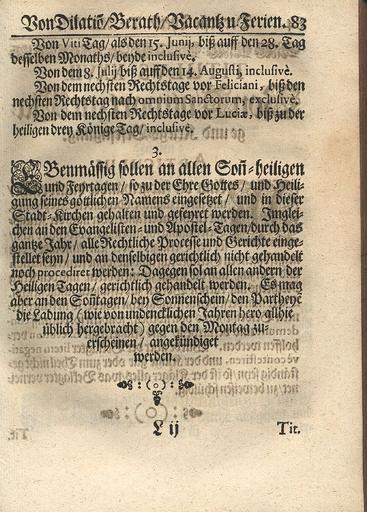 Von Dilatiō/ Berath/ Vacantz u Ferien. 83
Von Viti Tag/ als den 15. Junij, biß auff den 28. Tag
desselben Monaths/ beyde inclusivè.
Von dem 8. Julij biß auff den 14. Augusti, inclusivè.
Von dem nechsten Rechtstage vor Feliciani, biß den
nechsten Rechtstag nach omnium Sanctorum, exclusivè.
Von dem nechsten Rechtstage vor Luciæ, biß zu der
heiligen drey Könige Tag/ inclusivè.
3.
Ebenmässig sollen an allen Soñ-heiligen
und Feyrtagen/ so zu der Ehre Gottes/ und Heili-
gung seines göttlichen Namens eingesetzet/ und in dieser
Stadt-Kirchen gehalten und gefeyret werden. Imglei-
chen an den Evangelisten- und Apostel-Tagen/ durch das
gantze Jahr/ alle Rechtliche Processe und Gerichte einge-
stellet seyn/ und an denselbigen gerichtlich nicht gehandelt
noch procediret werden: Dagegen sol an allen andern der
Heiligen Tagen/ gerichtlich gehandelt werden. Es mag
aber an den Soñtagen/ bey Sonnenschein/ den Partheyē
die Ladung (wie von undencklichen Jahren hero allhie
üblich hergebracht) gegen den Montag zu-
erscheinen/ angekündiget
werden.
L ij Tit.